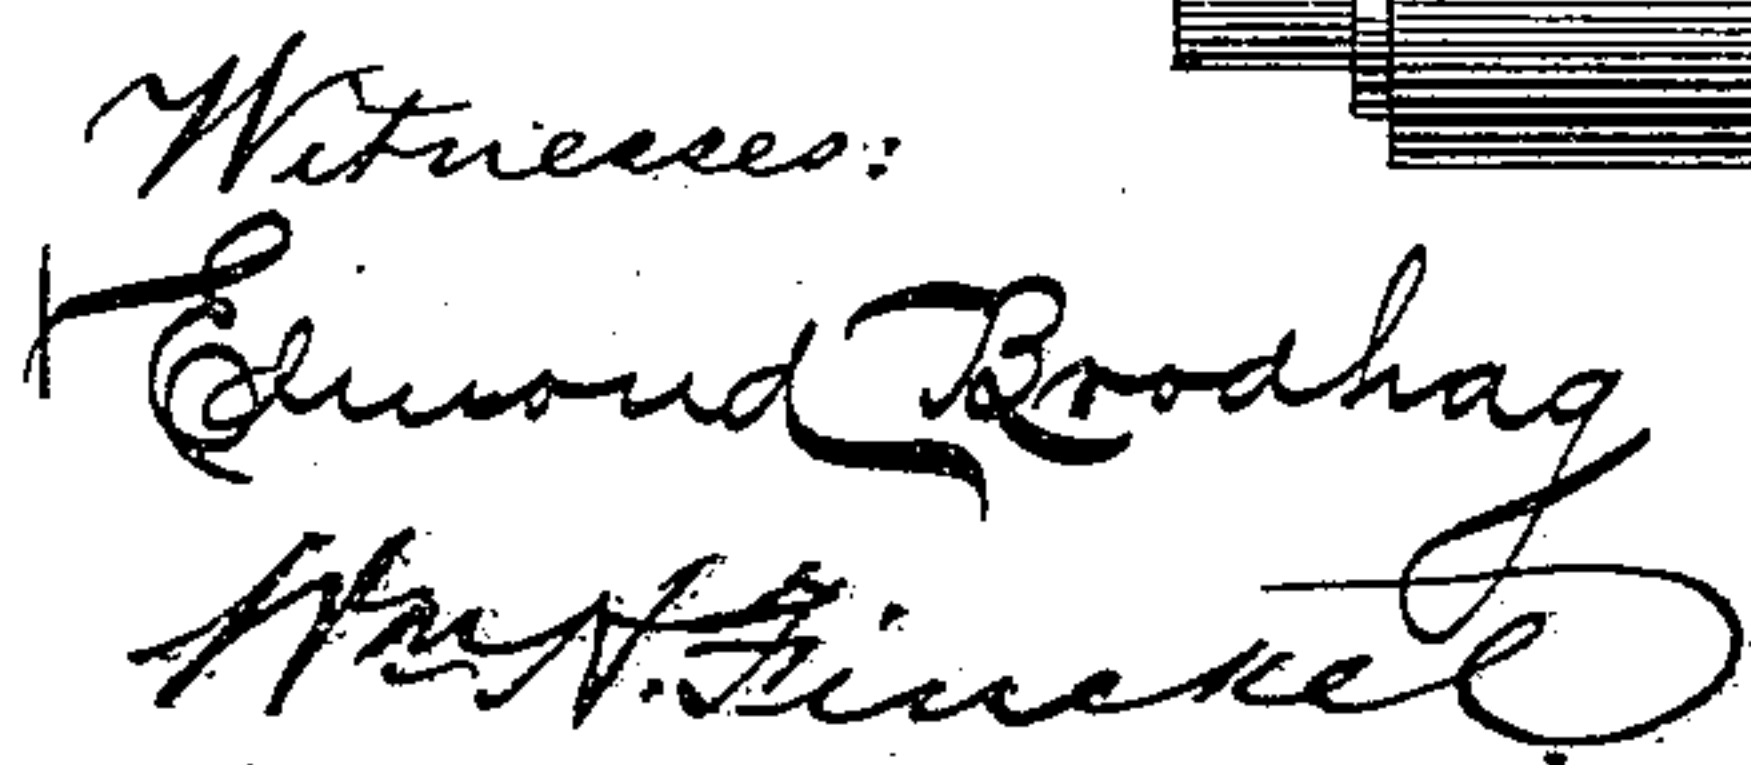 Witnesses:
Edmond Brodhag
Wm H. Finckel